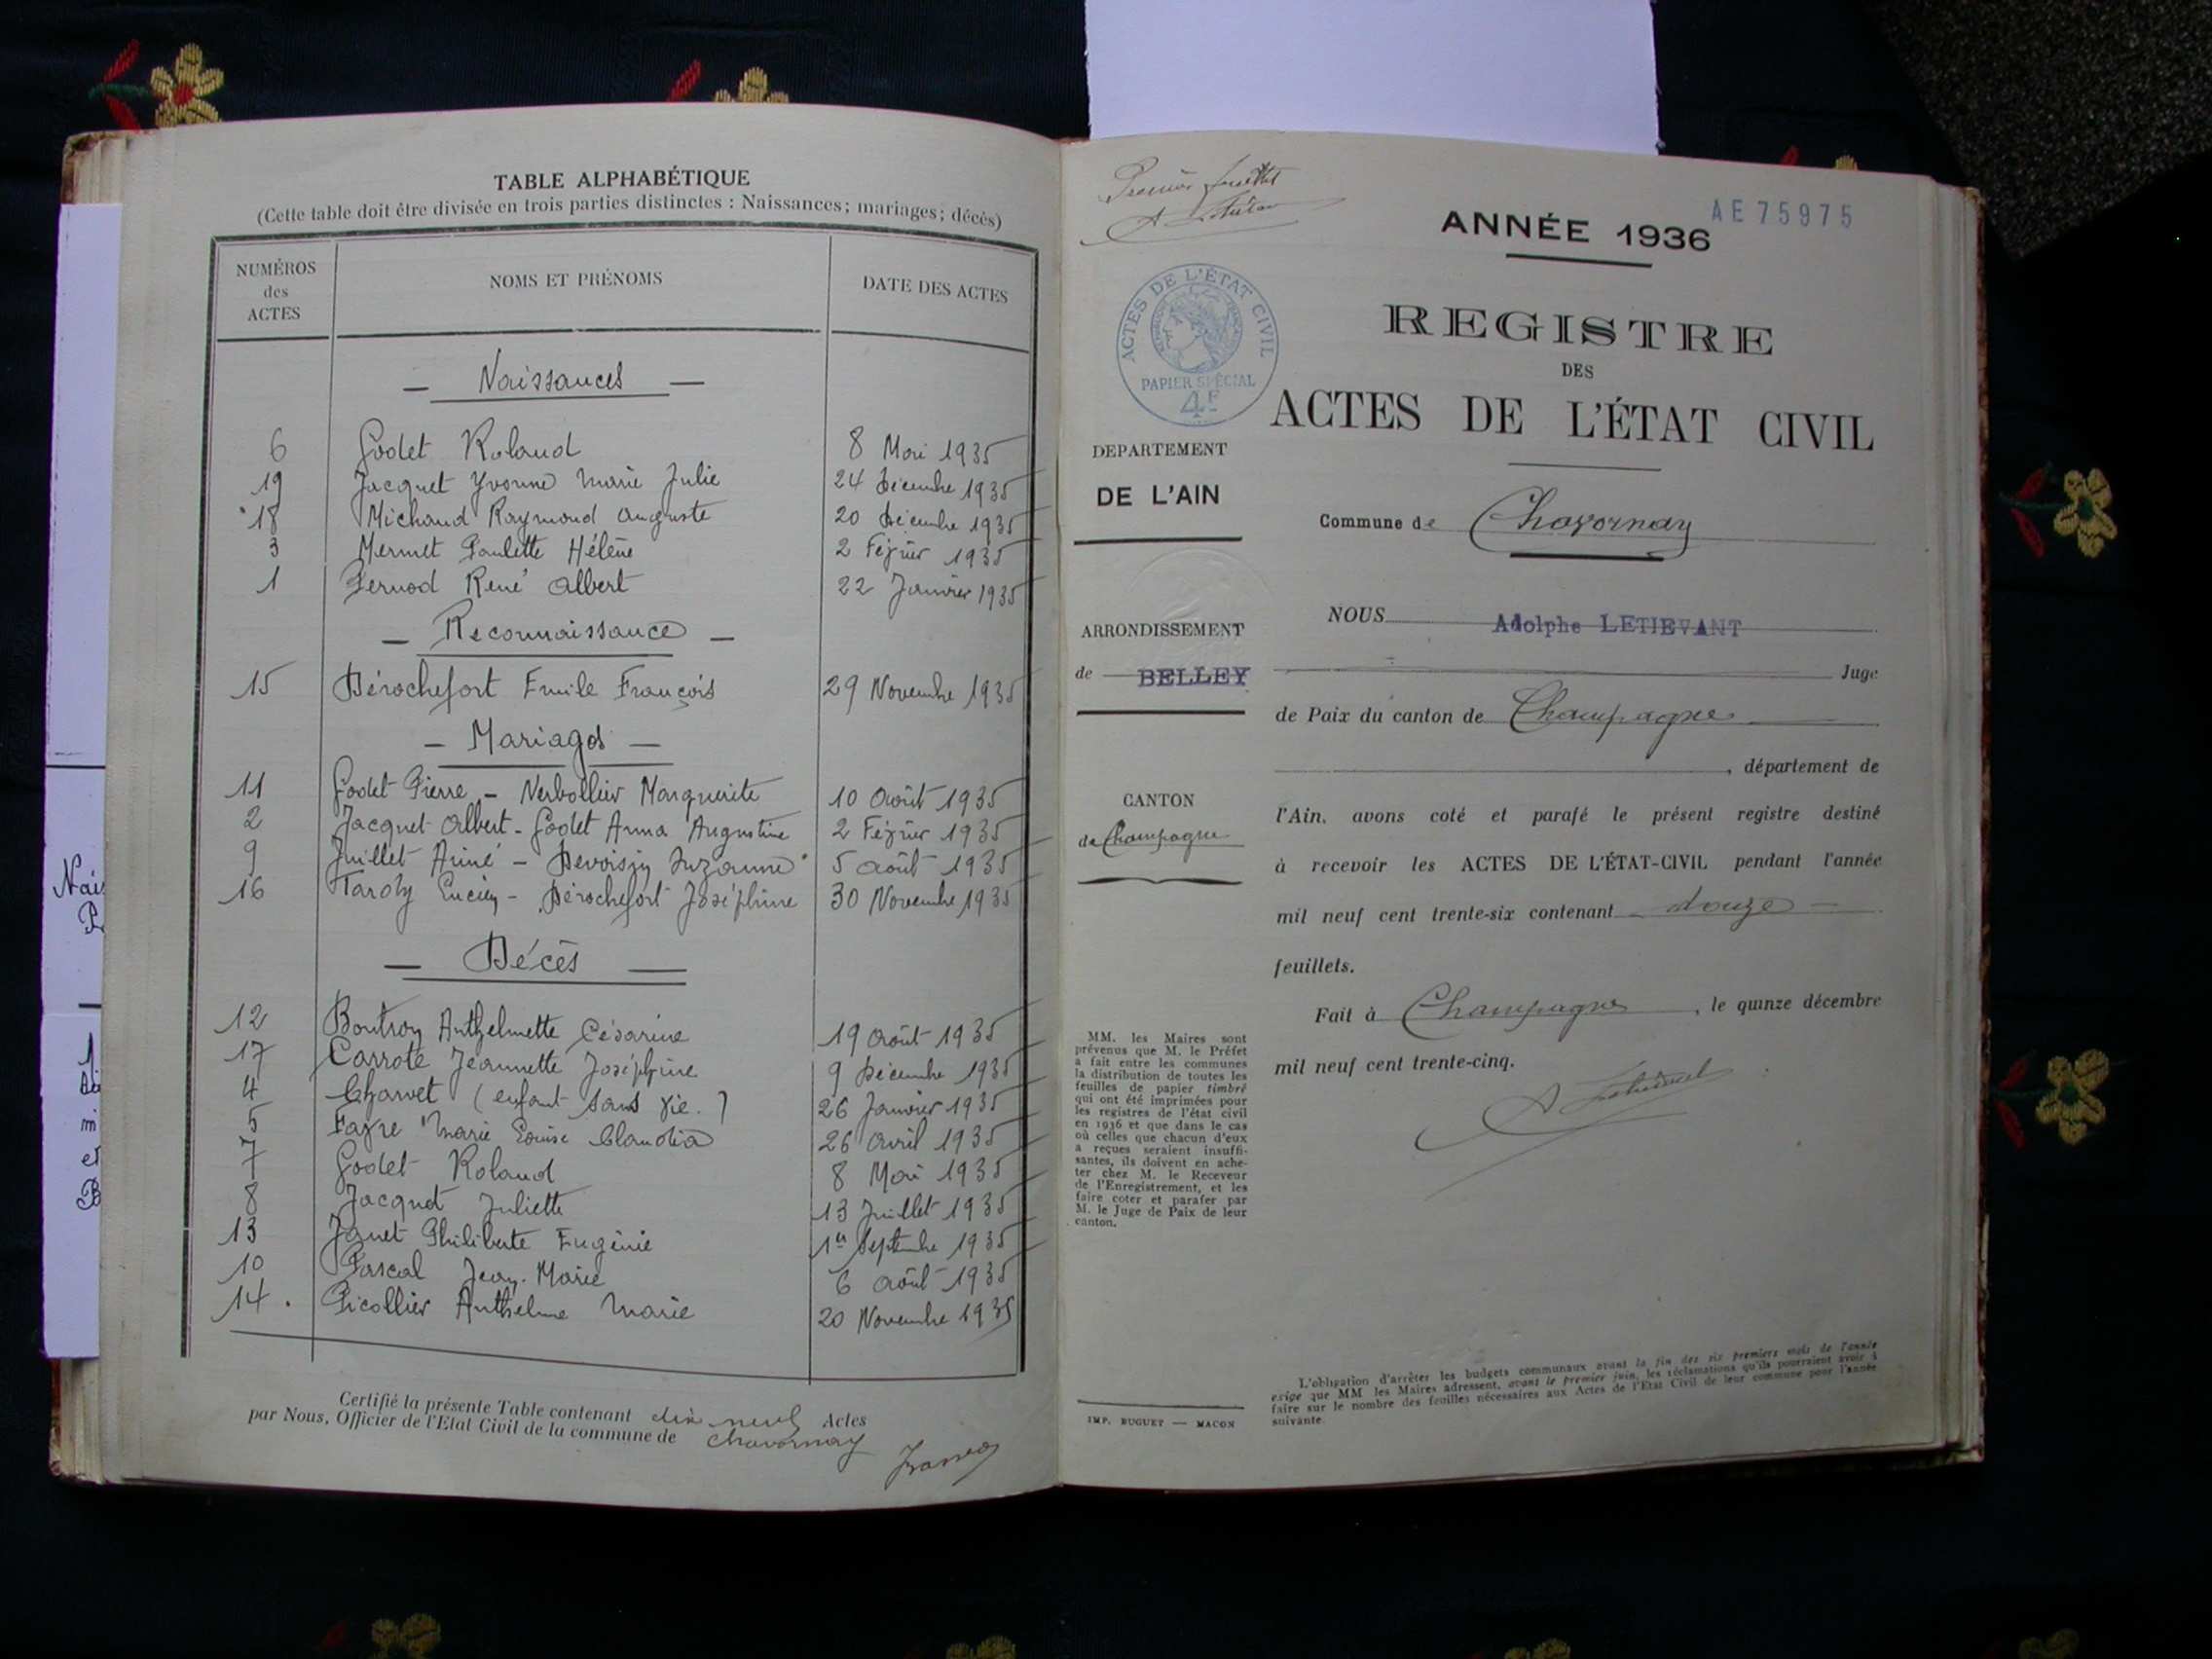 TABLE ALPHABÉTIQUE
(Cette table doit être divisée en trois parties distinctes : Naissances; mariages; décès)
NUMÉROS des ACTES
NOMS ET PRÉNOMS
DATE DES ACTES
— Naissances —
6 Godet Roland 8 Mai 1935
19 Jacquet Yvonne Marie Julie 24 Décembre 1935
18 Michaud Raymond Auguste 20 Décembre 1935
3 Mermet Paulette Hélène 2 Février 1935
1 Pernod René Albert 22 Janvier 1935
— Reconnaissance —
15 Dérochefort Emile François 29 Novembre 1935
— Mariages —
11 Godet Pierre - Marguerite 10 Août 1935
2 Jacquet Albert - Godet Anna Augustine 2 Février 1935
9 Juillet Aimé - Devoisin Suzanne 5 Août 1935
16 Tardy Lucien - Dérochefort Joséphine 30 Novembre 1935
— Décès —
12 Boutron Anthelmette Césarine 19 Août 1935
17 Carrote Jeannette Joséphine 9 Décembre 1935
4 Charvet (enfant sans vie.) 26 Janvier 1935
5 Favre Marie Louise Claudia 26 Avril 1935
7 Godet Roland 8 Mai 1935
8 Jacquet Juliette 13 Juillet 1935
13 Janet Philiberte Eugénie 1er Septembre 1935
10 Pascal Jean-Marie 6 Août 1935
14. Picollier Anthelme Marie 20 Novembre 1935
Certifié la présente Table contenant dix neuf Actes
par Nous, Officier de l'Etat Civil de la commune de Chavornay
Premier feuillet
AE 75975
ANNÉE 1936
REGISTRE
DES
ACTES DE L'ÉTAT CIVIL
ACTES DE L'ÉTAT CIVIL
PAPIER SPÉCIAL
4F
DEPARTEMENT
DE L'AIN
Commune de Chavornay
ARRONDISSEMENT
de BELLEY
NOUS Adolphe LETIEVANT
Juge
de Paix du canton de Champagne
, département de
CANTON
de Champagne
l'Ain, avons coté et parafé le présent registre destiné
à recevoir les ACTES DE L'ÉTAT-CIVIL pendant l'année
mil neuf cent trente-six contenant douze
feuillets.
Fait à Champagne, le quinze décembre
mil neuf cent trente-cinq.
MM. les Maires sont
prévenus que M. le Préfet
a fait entre les communes
la distribution de toutes les
feuilles de papier timbré
qui ont été imprimées pour
les registres de l'état civil
en 1936 et que dans le cas
où celles que chacun d'eux
a reçues seraient insuffi-
santes, ils doivent en ache-
ter chez M. le Receveur
de l'Enregistrement, et les
faire coter et parafer par
M. le Juge de Paix de leur
canton.
L'obligation d'arrêter les budgets communaux avant la fin des six premiers mois de l'année
exige que MM les Maires adressent, avant le premier juin, les réclamations qu'ils pourraient avoir à
faire sur le nombre des feuilles nécessaires aux Actes de l'Etat Civil de leur commune pour l'année
suivante
IMP. BUGUET — MACON